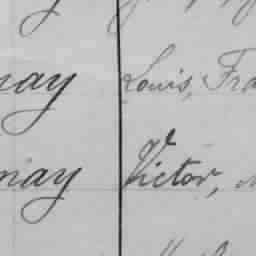 nay Louis, Fra
nay Victor,